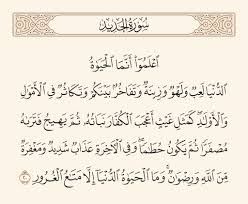 سُورَةُ الحَدِيدِ
ٱعۡلَمُوٓاْ أَنَّمَا ٱلۡحَيَوٰةُ
ٱلدُّنۡيَا لَعِبٞ وَلَهۡوٞ وَزِينَةٞ وَتَفَاخُرُۢ بَيۡنَكُمۡ وَتَكَاثُرٞ فِي ٱلۡأَمۡوَٰلِ
وَٱلۡأَوۡلَٰدِۖ كَمَثَلِ غَيۡثٍ أَعۡجَبَ ٱلۡكُفَّارَ نَبَاتُهُۥ ثُمَّ يَهِيجُ فَتَرَىٰهُ
مُصۡفَرّٗا ثُمَّ يَكُونُ حُطَٰمٗاۖ وَفِي ٱلۡأٓخِرَةِ عَذَابٞ شَدِيدٞ وَمَغۡفِرَةٞ
مِّنَ ٱللَّهِ وَرِضۡوَٰنٞۚ وَمَا ٱلۡحَيَوٰةُ ٱلدُّنۡيَآ إِلَّا مَتَٰعُ ٱلۡغُرُورِ ٢٠